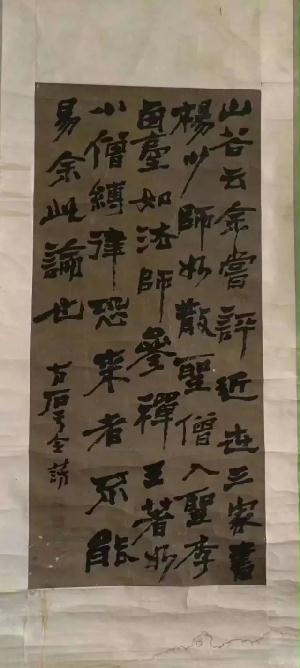 山谷云余嘗評近世三家書
楊少師如散聖僧入聖李
西臺如法師參禪王著如
小僧縛律恐來者不能
易余此論也